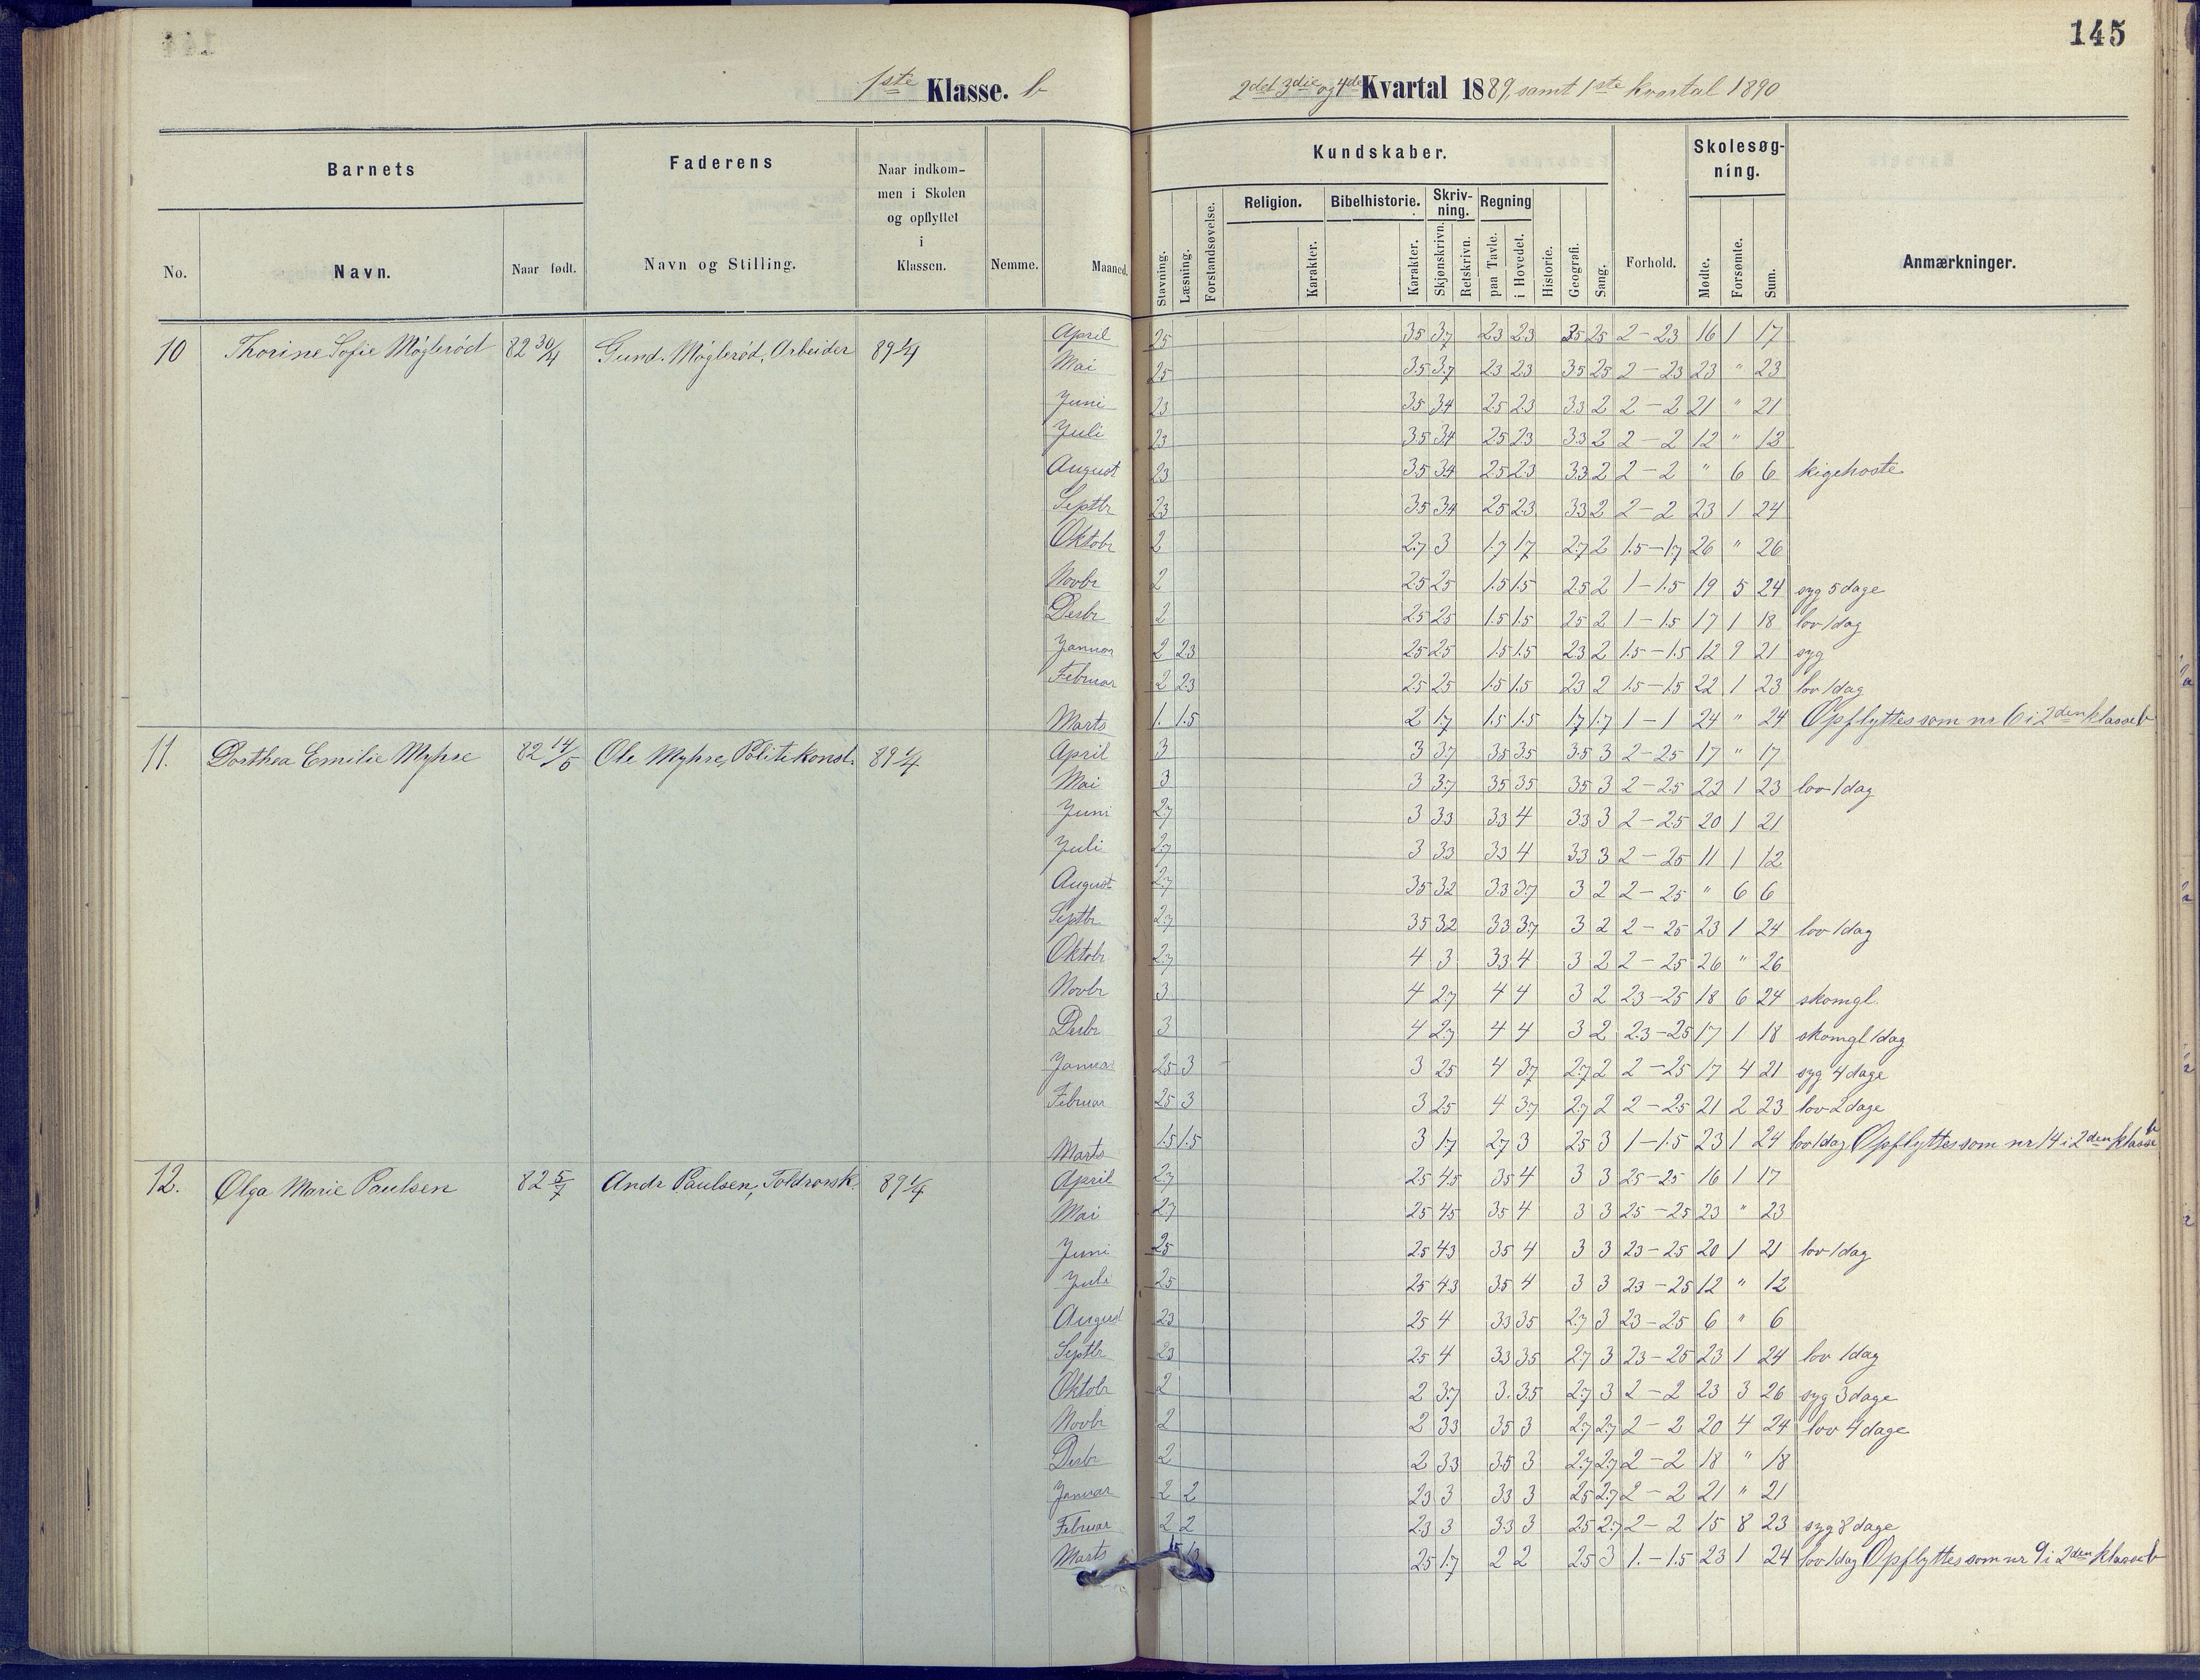 145
1ste Klasse. b
2det 3die og 4de Kvartal 1889, samt 1ste kvartal 1890
Barnets Faderens Naar indkommen i Skolen og opflyttet i Klassen. Nemme. Maaned.
No. Navn. Naar født. Navn og Stilling.
Kundskaber. Forhold. Skolesøgning. Anmærkninger.
Stavning. Læsning. Forstandsøvelse. Religion. Karakter. Bibelhistorie. Karakter. Skrivning. Skjønskrivn. Retskrivn. Regning paa Tavle. i Hovedet. Historie. Geografi. Sang. Mødte. Forsømte. Sum.
10 Thorine Sofie Møglerød 82 30/4 Gund. Møglerød, Arbeider 89 1/4 April 25 35 37 23 23 35 25 2-23 16 1 17
Mai 25 35 37 23 23 35 25 2-23 23 " 23
Juni 23 35 34 25 23 33 2 2-2 21 " 21
Juli 23 35 34 25 23 33 2 2-2 12 "
August 23 35 34 25 23 33 2 2-2 " 6 6 kigehoste
Septbr 23 35 34 25 23 33 2 2-2 23 1 24
Oktobr 2 27 3 17 17 27 2 1.5-1.7 26 " 26
Novbr 2 25 25 1.5 1.5 25 2 1-1.5 19 5 24 syg 5 dage
Desbr 2 25 25 1.5 1.5 25 2 1-1.5 17 1 18 lov 1 dag
Januar 2 23 25 25 1.5 1.5 23 2 1.5-1.5 12 9 21 syg
Februar 2 23 25 25 1.5 1.5 23 2 1.5-1.5 22 1 23 lov 1 dag
Marts 1. 1.5 2 1.7 1.5 1.5 1.7 1.7 1-1 24 " 24 Opflyttes som nr 6 i 2den klasse b
11. Dorthea Emilie Myhre 82 14/5 Ole Myhre, Politikonst. 89 1/4 April 3 3 37 35 35 35 3 2-25 17 " 17
Mai 3 3 37 35 35 35 3 2-25 22 1 23 lov 1 dag
Juni 27 3 33 33 4 33 3 2-25 20 1 21
Juli 27 3 33 33 4 33 3 2-25 11 1 12
August 27 35 32 33 37 3 2 2-25 " 6 6
Septbr 27 35 32 33 37 3 2 2-25 23 1 24 lov 1 dag
Oktobr 27 4 3 33 4 3 2 2-25 26 " 26
Novbr 3 4 27 4 4 3 2 23-25 18 6 24 skomgl.
Desbr 3 4 27 4 4 3 2 23-25 17 1 18 skomgl 1 dag
Januar 25 3 3 25 4 37 27 2 2-25 17 4 21 syg 4 dage
Februar 25 3 3 25 4 37 27 2 2-25 21 2 23 lov 2 dage
Marts 1.5 1.5 3 1.7 27 3 25 3 1-1.5 23 1 24 lov 1 dag Opflyttes som nr 14 i 2den klasse b
12. Olga Marie Paulsen 82 5/7 Andr Paulsen, 89 1/4 April 27 25 45 35 4 3 3 25-25 16 1 17
Mai 27 25 45 35 4 3 3 25-25 23 " 23
Juni 25 25 43 35 4 3 3 23-25 20 1 21 lov 1 dag
Juli 25 25 43 35 4 3 3 23-25 12 " 12
August 23 25 4 33 35 27 3 23-25 6 " 6
Septbr 23 25 4 33 35 27 3 23-25 23 1 24 lov 1 dag
Oktobr 2 2 37 3. 35 27 3 2-2 23 3 26 syg 3 dage
Novbr 2 2 33 35 3 27 27 2-2 20 4 24 lov 4 dage
Desbr 2 2 33 35 3 27 27 2-2 18 " 18
Januar 2 2 23 3 33 3 25 27 2-2 21 " 21
Februar 2 2 23 3 33 3 25 27 2-2 15 8 23 syg 8 dage
Marts 25 1.7 2 2 25 3 1.-1.5 23 1 24 lov 1 dag Opflyttes som nr 9 i 2den klasse b